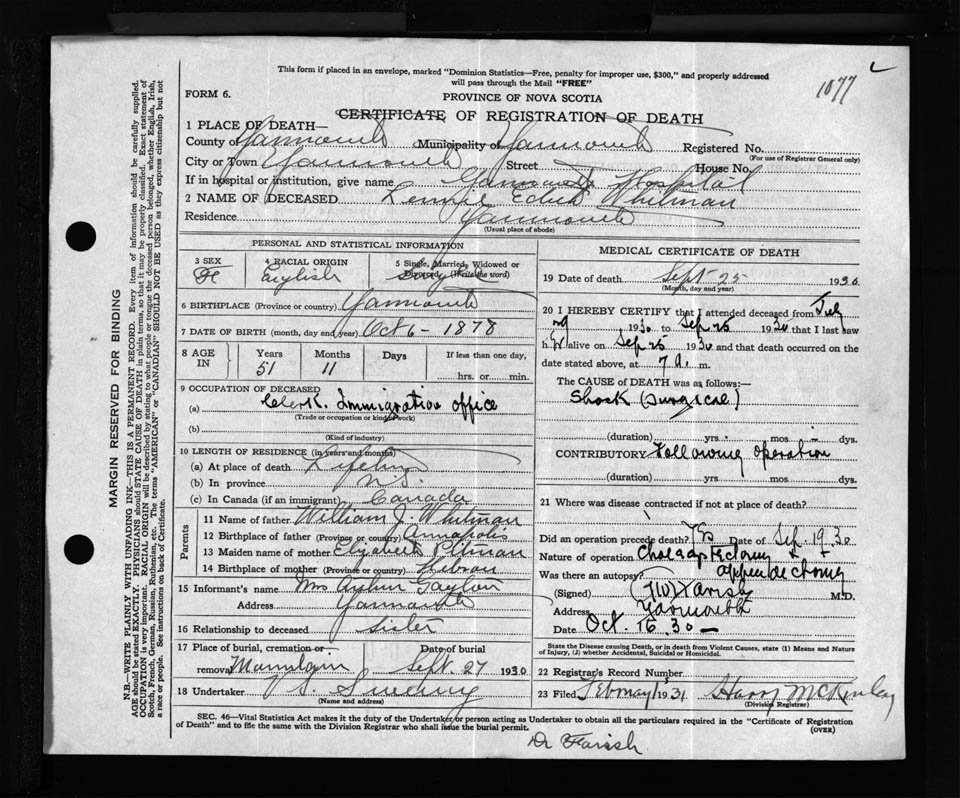 This form if placed in an envelope, marked "Dominion Statistics—Free, penalty for improper use, $300," and properly addressed
will pass through the Mail "FREE"
1077
FORM 6.
PROVINCE OF NOVA SCOTIA
CERTIFICATE OF REGISTRATION OF DEATH
1 PLACE OF DEATH—
County of Yarmouth Municipality of Yarmouth Registered No.
(For use of Registrar General only)
City or Town Yarmouth Street House No.
If in hospital or institution, give name Yarmouth Hospital
2 NAME OF DECEASED Edith Whitman
Residence Yarmouth
(Usual place of abode)
PERSONAL AND STATISTICAL INFORMATION
3 SEX 4 RACIAL ORIGIN 5 Single, Married, Widowed or
F English Single Divorced (Write the word)
6 BIRTHPLACE (Province or country) Yarmouth
7 DATE OF BIRTH (month, day and year) Oct 6 - 1878
8 AGE IN Years Months Days If less than one day,
51 11 hrs. or min.
9 OCCUPATION OF DECEASED
(a) Clerk. Immigration office
(Trade or occupation or kind of work)
(b)
(Kind of industry)
10 LENGTH OF RESIDENCE (in years and months)
(a) At place of death Lifetime
(b) In province N.S.
(c) In Canada (if an immigrant) Canada
Parents
11 Name of father William J. Whitman
12 Birthplace of father (Province or country) Annapolis
13 Maiden name of mother Elizabeth Pitman
14 Birthplace of mother (Province or country) Hebron
15 Informant's name Mrs Arthur Gayton
Address Yarmouth
16 Relationship to deceased Sister
17 Place of burial, cremation or Date of burial
removal Mountain Sept. 27 1930
18 Undertaker V. S. Sweeny
(Name and address)
MEDICAL CERTIFICATE OF DEATH
19 Date of death Sept 25 1930.
(Month, day and year)
20 I HEREBY CERTIFY that I attended deceased from July
29 1930 to Sep 25 1930 that I last saw
h er alive on Sep 25 1930 and that death occurred on the
date stated above, at 7 a. m.
The CAUSE OF DEATH was as follows:—
Shock (surgical)
(duration) yrs. mos. dys.
CONTRIBUTORY Following operation
(duration) yrs. mos. dys.
21 Where was disease contracted if not at place of death?
Did an operation precede death? Yes Date of Sep. 19.30
Nature of operation
Was there an autopsy?
(Signed) Farish M.D.
Address Yarmouth
Date Oct. 16. 30 —
State the Disease causing Death, or in death from Violent Causes, state (1) Means and Nature
of Injury, (2) whether Accidental, Suicidal or Homicidal.
22 Registrar's Record Number
23 Filed February 1931 Harry McKinlay
(Division Registrar)
SEC. 46—Vital Statistics Act makes it the duty of the Undertaker or person acting as Undertaker to obtain all the particulars required in the "Certificate of Registration
of Death" and to file the same with the Division Registrar who shall issue the burial permit. (OVER)
Dr Farish
MARGIN RESERVED FOR BINDING
N.B.—WRITE PLAINLY WITH UNFADING INK—THIS IS A PERMANENT RECORD. Every item of information should be carefully supplied.
AGE should be stated EXACTLY. PHYSICIANS should STATE CAUSE OF DEATH in plain terms, so that it may be properly classified. Exact statement of
OCCUPATION is very important. RACIAL ORIGIN will be described by stating to what people or tongue the deceased person belonged, whether English, Irish,
Scotch, French, German, Russian, Ruthenian, etc. The terms "AMERICAN" or "CANADIAN" SHOULD NOT BE USED as they express citizenship but not
a race or people. See instructions on back of Certificate.